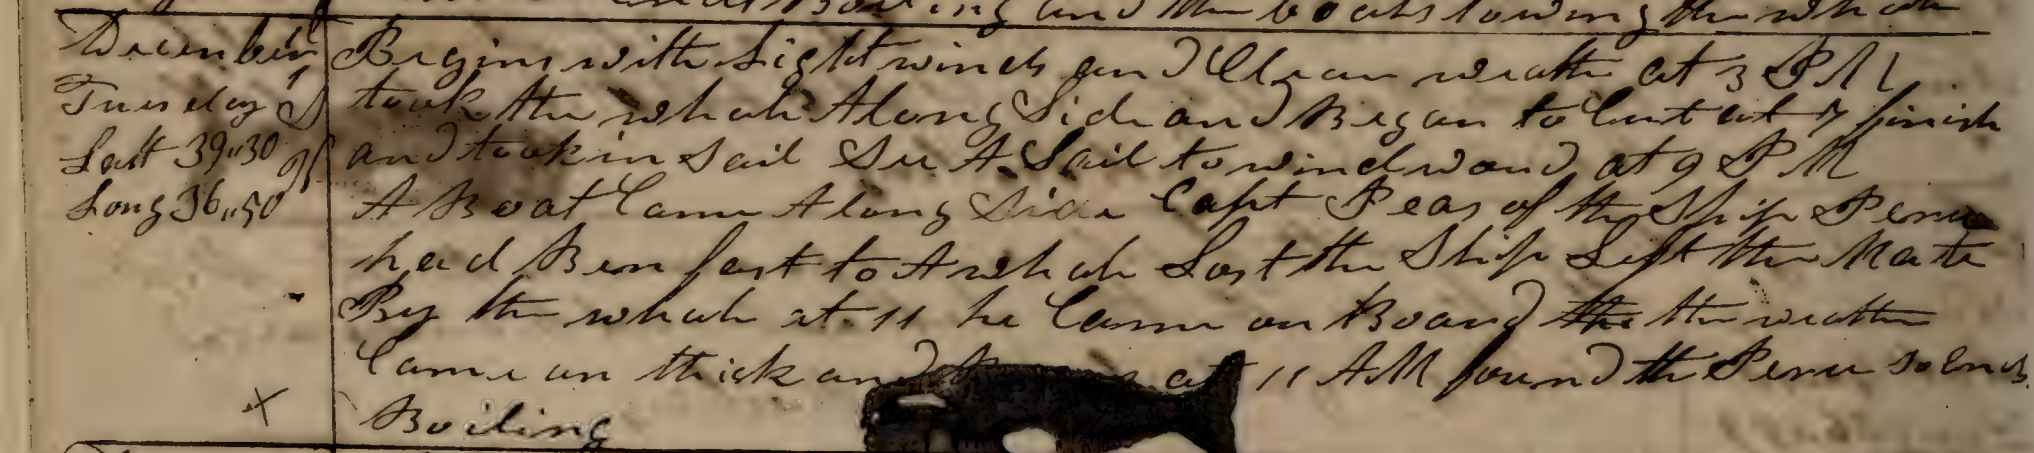 and the boats towing the whale
December
Tuesday 1
Latt 39"30
Long 36"50
Begins with Light winds and Clear weathe at 3 PM
took the whale Along Side and Began to Cut at 7 finish
and took in Sail See A Sail to windward at 9 PM
A Boat Came Along Side Capt Peas of the Ship Peru
had Ben fast to A whale Lost the Ship Left the Mate
By the whale at 11 he Came on Board the the weather
Came on thick and at 11 AM found the Peru so Ends
Boiling